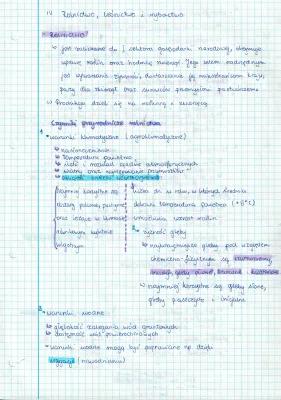 IV Rolnictwo, leśnictwo i rybactwo
Rolnictwo
↳ jest zaliczane do I sektora gospodarki narodowej, obejmuje
uprawę roślin oraz hodowlę zwierząt. Jego celem nadrzędnym
jest wytwarzanie żywności, dostarczanie jej mieszkańcom kraju,
paszy dla zwierząt oraz surowców przemysłowi
↳ Produkcja dzieli się na roślinną i zwierzęcą.
Czynniki przyrodnicze rolnictwa
1. warunki klimatyczne (agroklimatyczne)
↳ nasłonecznienie
↳ temperatura powietrza
↳ ilość i rozkład opadów atmosferycznych
↳ wiatry oraz występowanie przymrozków
↳ długość okresu wegetacyjnego
Najmniej korzystne są
oraz leżące w klimacie
liczba dni w roku, w których średnia
dobowa temperatura powietrza (+5°C)
umożliwia wzrost roślin
2. żyzność gleby
↳ najurodzajniejsze gleby pod względem
chemiczno-fizycznym są czarnoziemy,
mady, gleby brunatne
↳ najmniej korzystne są gleby słone,
gleby piaszczyste i inicjalne
3. warunki wodne
↳ głębokość zalegania wód gruntowych
↳ dostępność wód powierzchniowych
- warunki wodne mogą być poprawiane np. dzięki
irygacji (nawodnieniu)